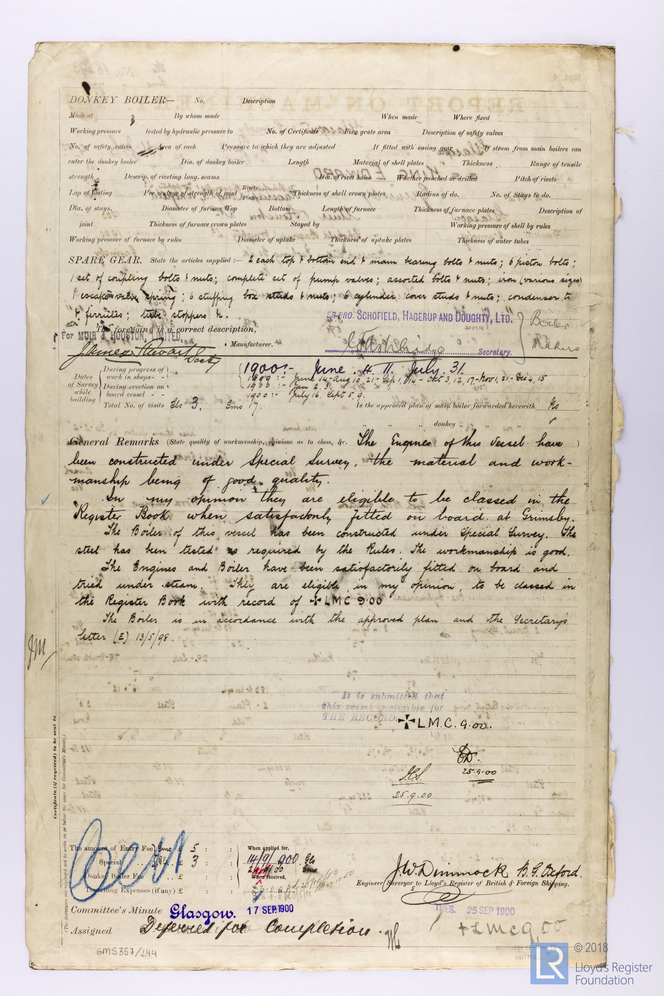 DONKEY BOILER— No. Description
Made at By whom made When made Where fixed
Working pressure tested by hydraulic pressure to No. of Certificate Fire grate area Description of safety valves
No. of safety valves Area of each Pressure to which they are adjusted If fitted with easing gear If steam from main boilers can
enter the donkey boiler Dia. of donkey boiler Length Material of shell plates Thickness Range of tensile
strength Descrip. of riveting long. seams Dia. of rivet holes Whether punched or drilled Pitch of rivets
Lap of plating Per centage of strength of joint Rivets Thickness of shell crown plates Radius of do. No. of Stays to do.
Dia. of stays. Diameter of furnace Top Bottom Length of furnace Thickness of furnace plates Description of
joint Thickness of furnace crown plates Stayed by Working pressure of shell by rules
Working pressure of furnace by rules Diameter of uptake Thickness of uptake plates Thickness of water tubes
SPARE GEAR. State the articles supplied:— 2 each top & bottom end & main bearing bolts & nuts; 6 piston bolts;
1 set of coupling bolts & nuts; complete set of pump valves; assorted bolts & nuts; iron (various sizes)
1 escape valve spring; 6 stuffing box studs & nuts; 6 cylinder cover studs & nuts; condenser tubes
& ferrules; tube stoppers &c.
The foregoing is a correct description,
For MUIR & HOUSTON, LIMITED, PER PRO. SCHOFIELD, HAGERUP AND DOUGHTY, LTD. Boiler
James Stewart Secty Manufacturer. Secretary. Makers
Dates of Survey while building
During progress of work in shops - - 1900:- June 4. 11. July 31.
1900:- June 14-Aug 10, 21- Sept 1, 14- Oct 3, 12, 17-Nov 1, 21-Dec 4, 15
During erection on board vessel - - 1900:- July 16, Sept 5. 9.
Total No. of visits Gls 3. Gms 17. Is the approved plan of main boiler forwarded herewith Yes
" " " donkey " " "
General Remarks (State quality of workmanship, opinions as to class, &c. The Engines of this vessel have
been constructed under Special Survey. the material and work-
manship being of good quality.
In my opinion they are eligible to be classed in the
Register Book when satisfactorily fitted on board at Grimsby.
The Boiler of this vessel has been constructed under Special Survey. The
steel has been tested as required by the Rules. The workmanship is good.
The Engines and Boiler have been satisfactorily fitted on board and
tried under steam. They are eligible, in my opinion, to be classed in
the Register Book with record of ✠ LMC 9.00
The Boiler is in accordance with the approved plan and the Secretary's
letter (E) 13/5/98.
It is submitted that
this vessel is eligible for
THE RECORD ✠ L.M.C. 9.00.
25.9.00
25.9.00
Certificate (if required) to be sent to
The amount of Entry Fee £ 5 : : When applied for,
Special £ 3 : 14/9/1900
Donkey Boiler Fee £ : : When received,
Travelling Expenses (if any) £ : :
J.W. Dimmock B.G. Oxford.
Engineer Surveyor to Lloyd's Register of British & Foreign Shipping.
Committee's Minute Glasgow. 17 SEP 1900 TUES. 25 SEP 1900
Assigned Deferred for Completion. + LMC 9.00
GMS357/244
© 2018
LR Lloyd's Register
Foundation